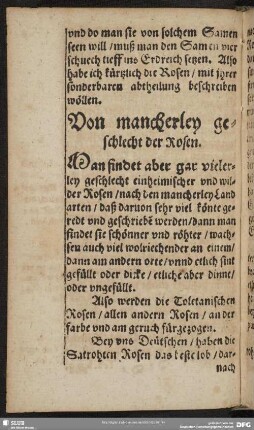 vnd do man sie von solchem Samen
seen will / muß man den Samen vier
schuech tieff ins Erdreich setzen. Also
habe ich kürtzlich die Rosen / mit jhrer
sonderbaren abtheilung beschreiben
wöllen.
Von mancherley ge-
schlecht der Rosen.
Man findet aber gar vieler-
ley geschlecht einheimischer vnd wil-
der Rosen / nach den mancherley Land
arten / daß daruon sehr viel könte ge-
redt vnd geschriebē werden / dann man
findet sie schönner vnd röhter / wach-
sen auch viel wolriechender an einem /
dann am andern orte / vnnd etlich sint
gefüllt oder dicke / etliche aber dinne /
oder vngefüllt.
Also werden die Toletanischen
Rosen / allen andern Rosen / an der
farbe vnd am geruch fürgezogen.
Bey vns Deütschen / haben die
Satrohten Rosen das beste lob / dar-
nach